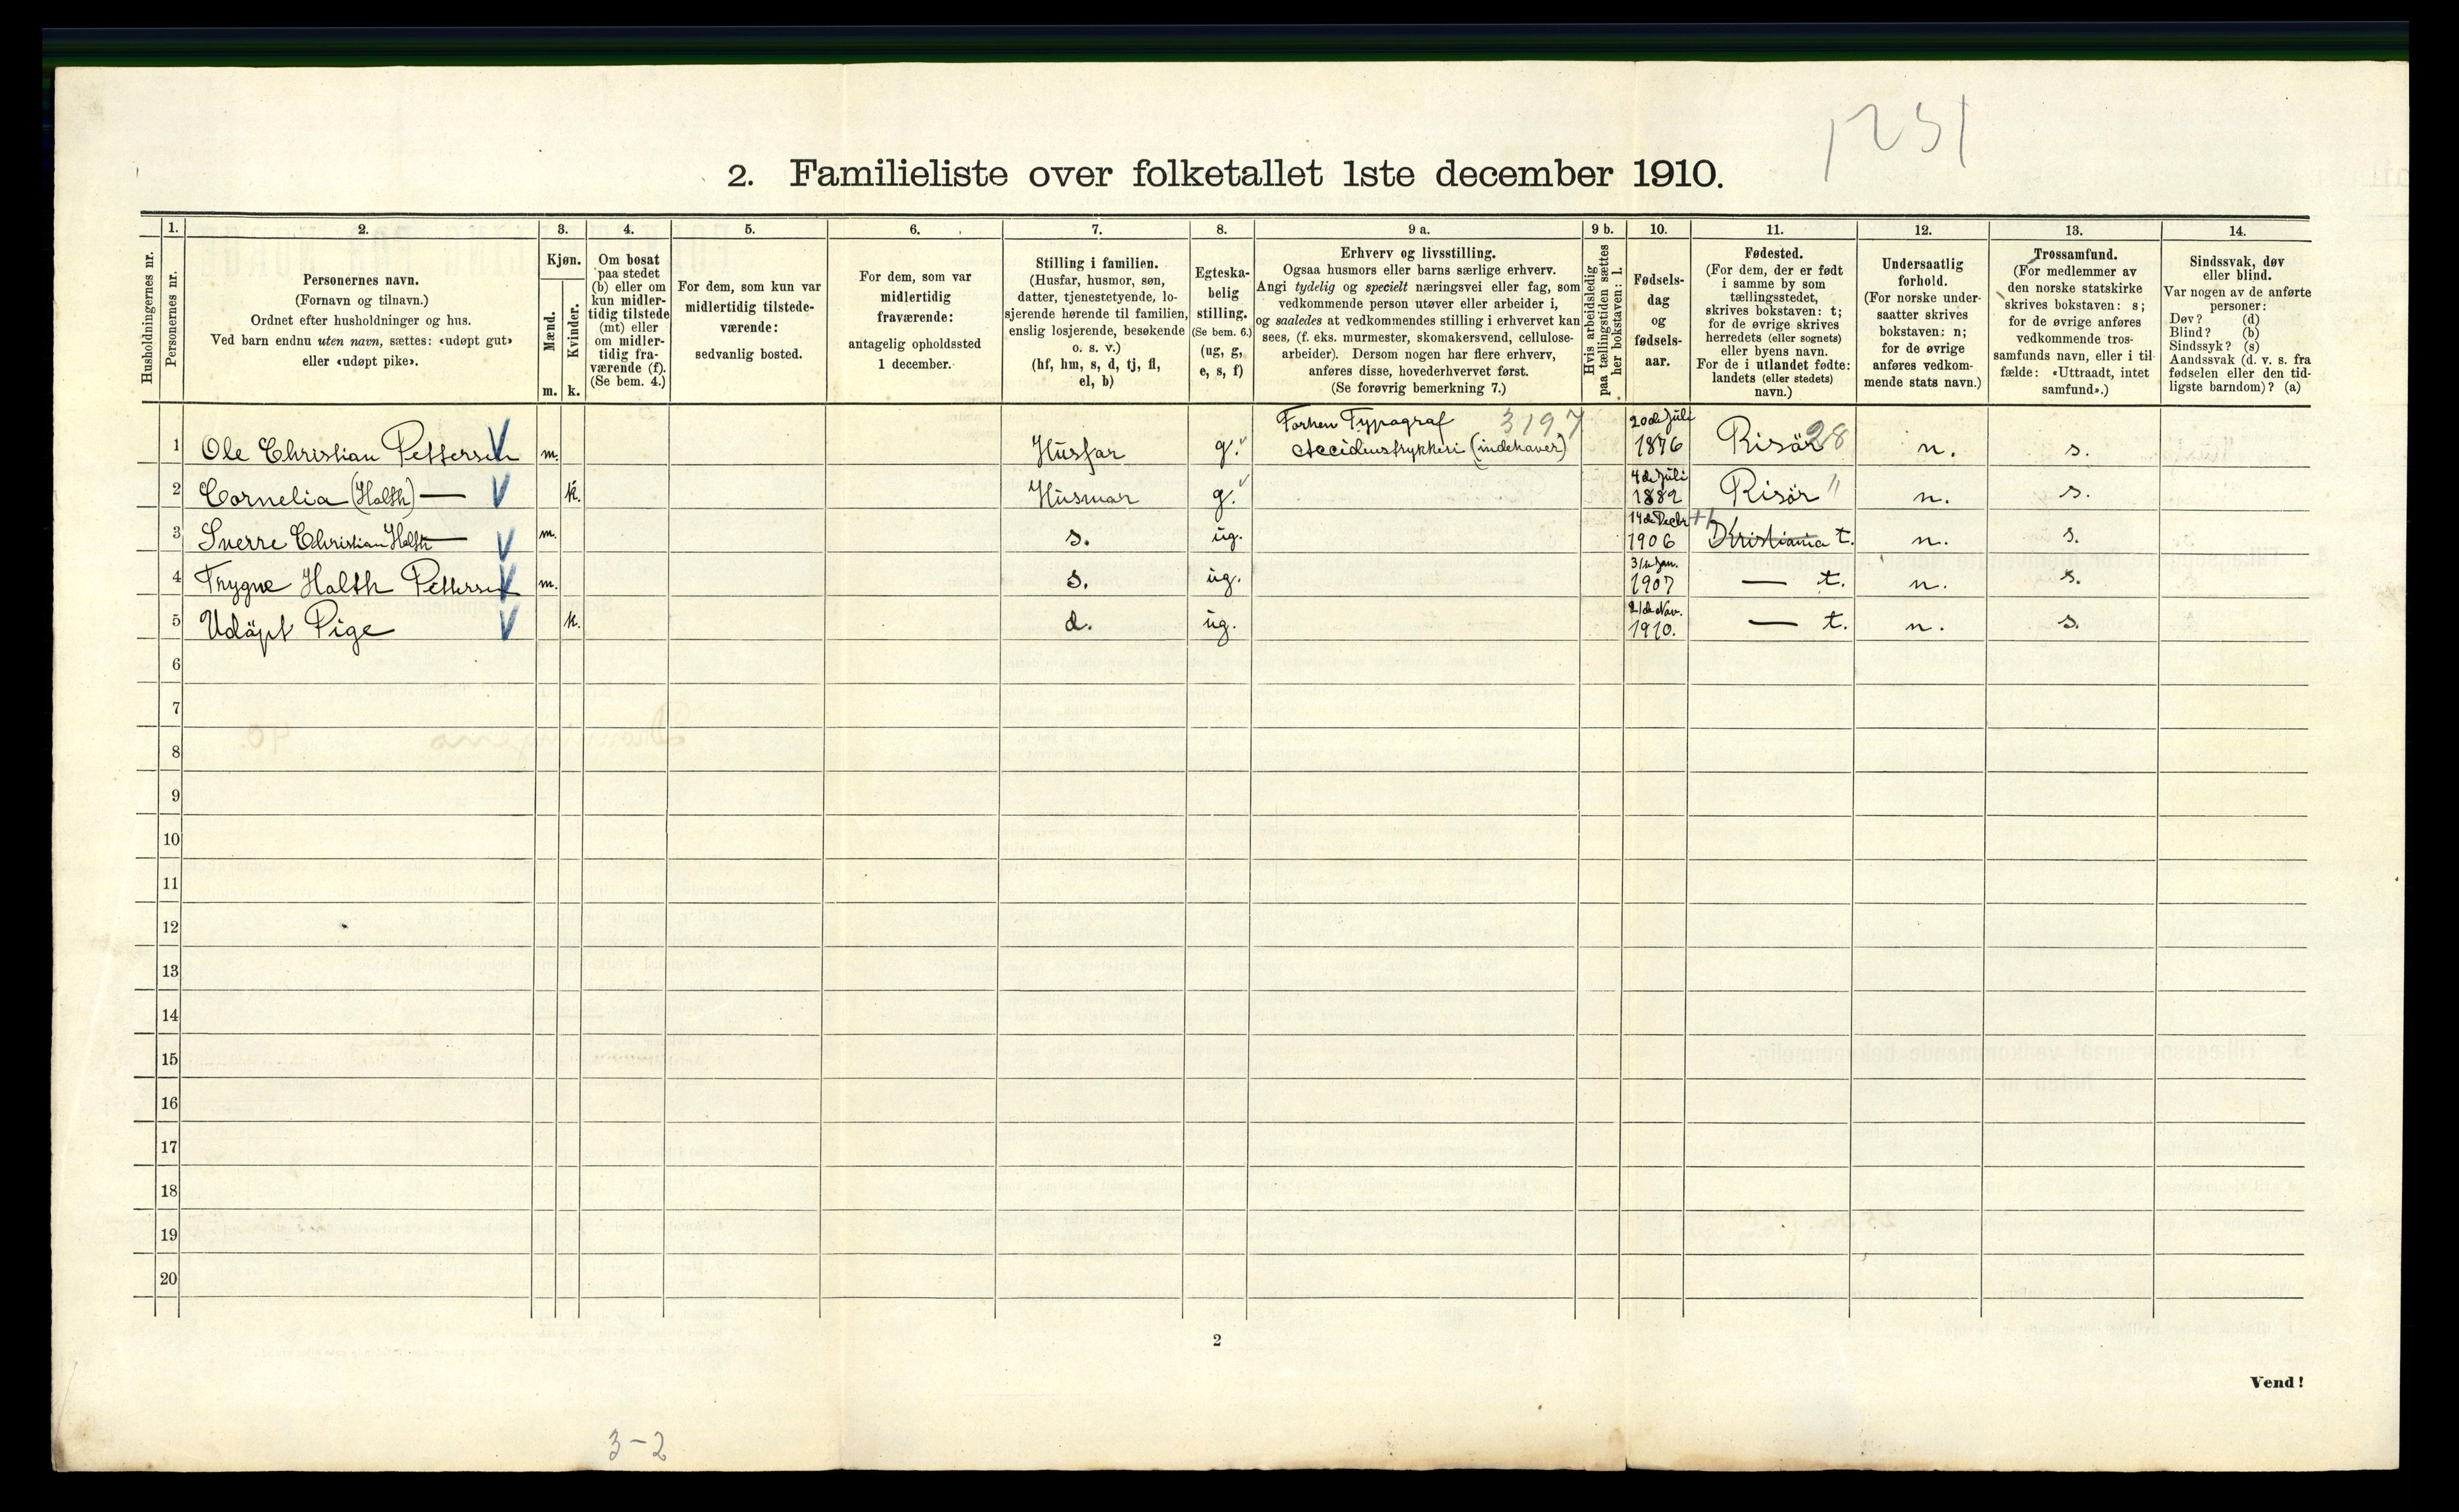 1251
2. Familieliste over folketallet 1ste december 1910.
Husholdningernes nr.
1.
Personernes nr.
2.
Personernes navn.
(Fornavn og tilnavn.)
Ordnet efter husholdninger og hus.
Ved barn endnu uten navn, sættes: «udøpt gut»
eller «udøpt pike».
3.
Kjøn.
Mænd.
Kvinder.
m. k.
4.
Om bosat
paa stedet
(b) eller om
kun midler-
tidig tilstede
(mt) eller
om midler-
tidig fra-
værende (f).
(Se bem. 4.)
5.
For dem, som kun var
midlertidig tilstede-
værende:
sedvanlig bosted.
6.
For dem, som var
midlertidig
fraværende:
antagelig opholdssted
1 december.
7.
Stilling i familien.
(Husfar, husmor, søn,
datter, tjenestetyende, lo-
sjerende hørende til familien,
enslig losjerende, besøkende
o. s. v.)
(hf, hm, s, d, tj, fl,
el, b)
8.
Egteska-
belig
stilling.
(Se bem. 6.)
(ug, g,
e, s, f)
9 a.
Erhverv og livsstilling.
Ogsaa husmors eller barns særlige erhverv.
Angi tydelig og specielt næringsvei eller fag, som
vedkommende person utøver eller arbeider i,
og saaledes at vedkommendes stilling i erhvervet kan
sees, (f. eks. murmester, skomakersvend, cellulose-
arbeider). Dersom nogen har flere erhverv,
anføres disse, hovederhvervet først.
(Se forøvrig bemerkning 7.)
9 b.
Hvis arbeidsledig
paa tællingstiden sættes
her bokstaven: l.
10.
Fødsels-
dag
og
fødsels-
aar.
11.
Fødested.
(For dem, der er født
i samme by som
tællingsstedet,
skrives bokstaven: t;
for de øvrige skrives
herredets (eller sognets)
eller byens navn.
For de i utlandet fødte:
landets (eller stedets)
navn.)
12.
Undersaatlig
forhold.
(For norske under-
saatter skrives
bokstaven: n;
for de øvrige
anføres vedkom-
mende stats navn.)
13.
Trossamfund.
(For medlemmer av
den norske statskirke
skrives bokstaven: s;
for de øvrige anføres
vedkommende tros-
samfunds navn, eller i til-
fælde: «Uttraadt, intet
samfund».)
14.
Sindssvak, døv
eller blind.
Var nogen av de anførte
personer:
Døv? (d)
Blind? (b)
Sindssyk? (s)
Aandssvak (d. v. s. fra
fødselen eller den tid-
ligste barndom)? (a)
Forhen Typograf 3197 20de Juli
1 Ole Christian Pettersen m. Husfar g. Accidenstrykkeri (indehaver) 1876 Risör 28 n. s.
4de Juli
2 Cornelia (Holth) — k. Husmor g. 1882 Risör " n. s.
14de Decbr
3 Sverre Christian Holth — m. s. ug. 1906 Kristiania t. n. s.
31te Jan.
4 Trygve Holth Pettersen m. s. ug. 1907 — t. n. s.
21de Nov.
5 Udöpt Pige k. d. ug. 1910. — t. n. s.
6
7
8
9
10
11
12
13
14
15
16
17
18
19
20
2
Vend!
3-2